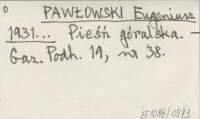 PAWŁOWSKI Eugeniusz
1931... Pieśń góralska. –
Gaz. Podh. 19, nr 38.